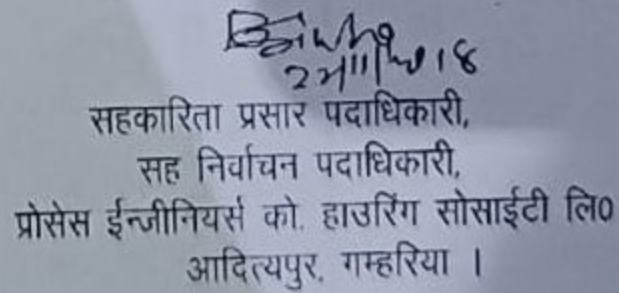 सहकारिता प्रसार पदाधिकारी,
सह निर्वाचन पदाधिकारी,
प्रोसेस ईन्जीनियर्स को. हाउरिंग सोसाईटी लि०
आदित्यपुर, गम्हरिया ।